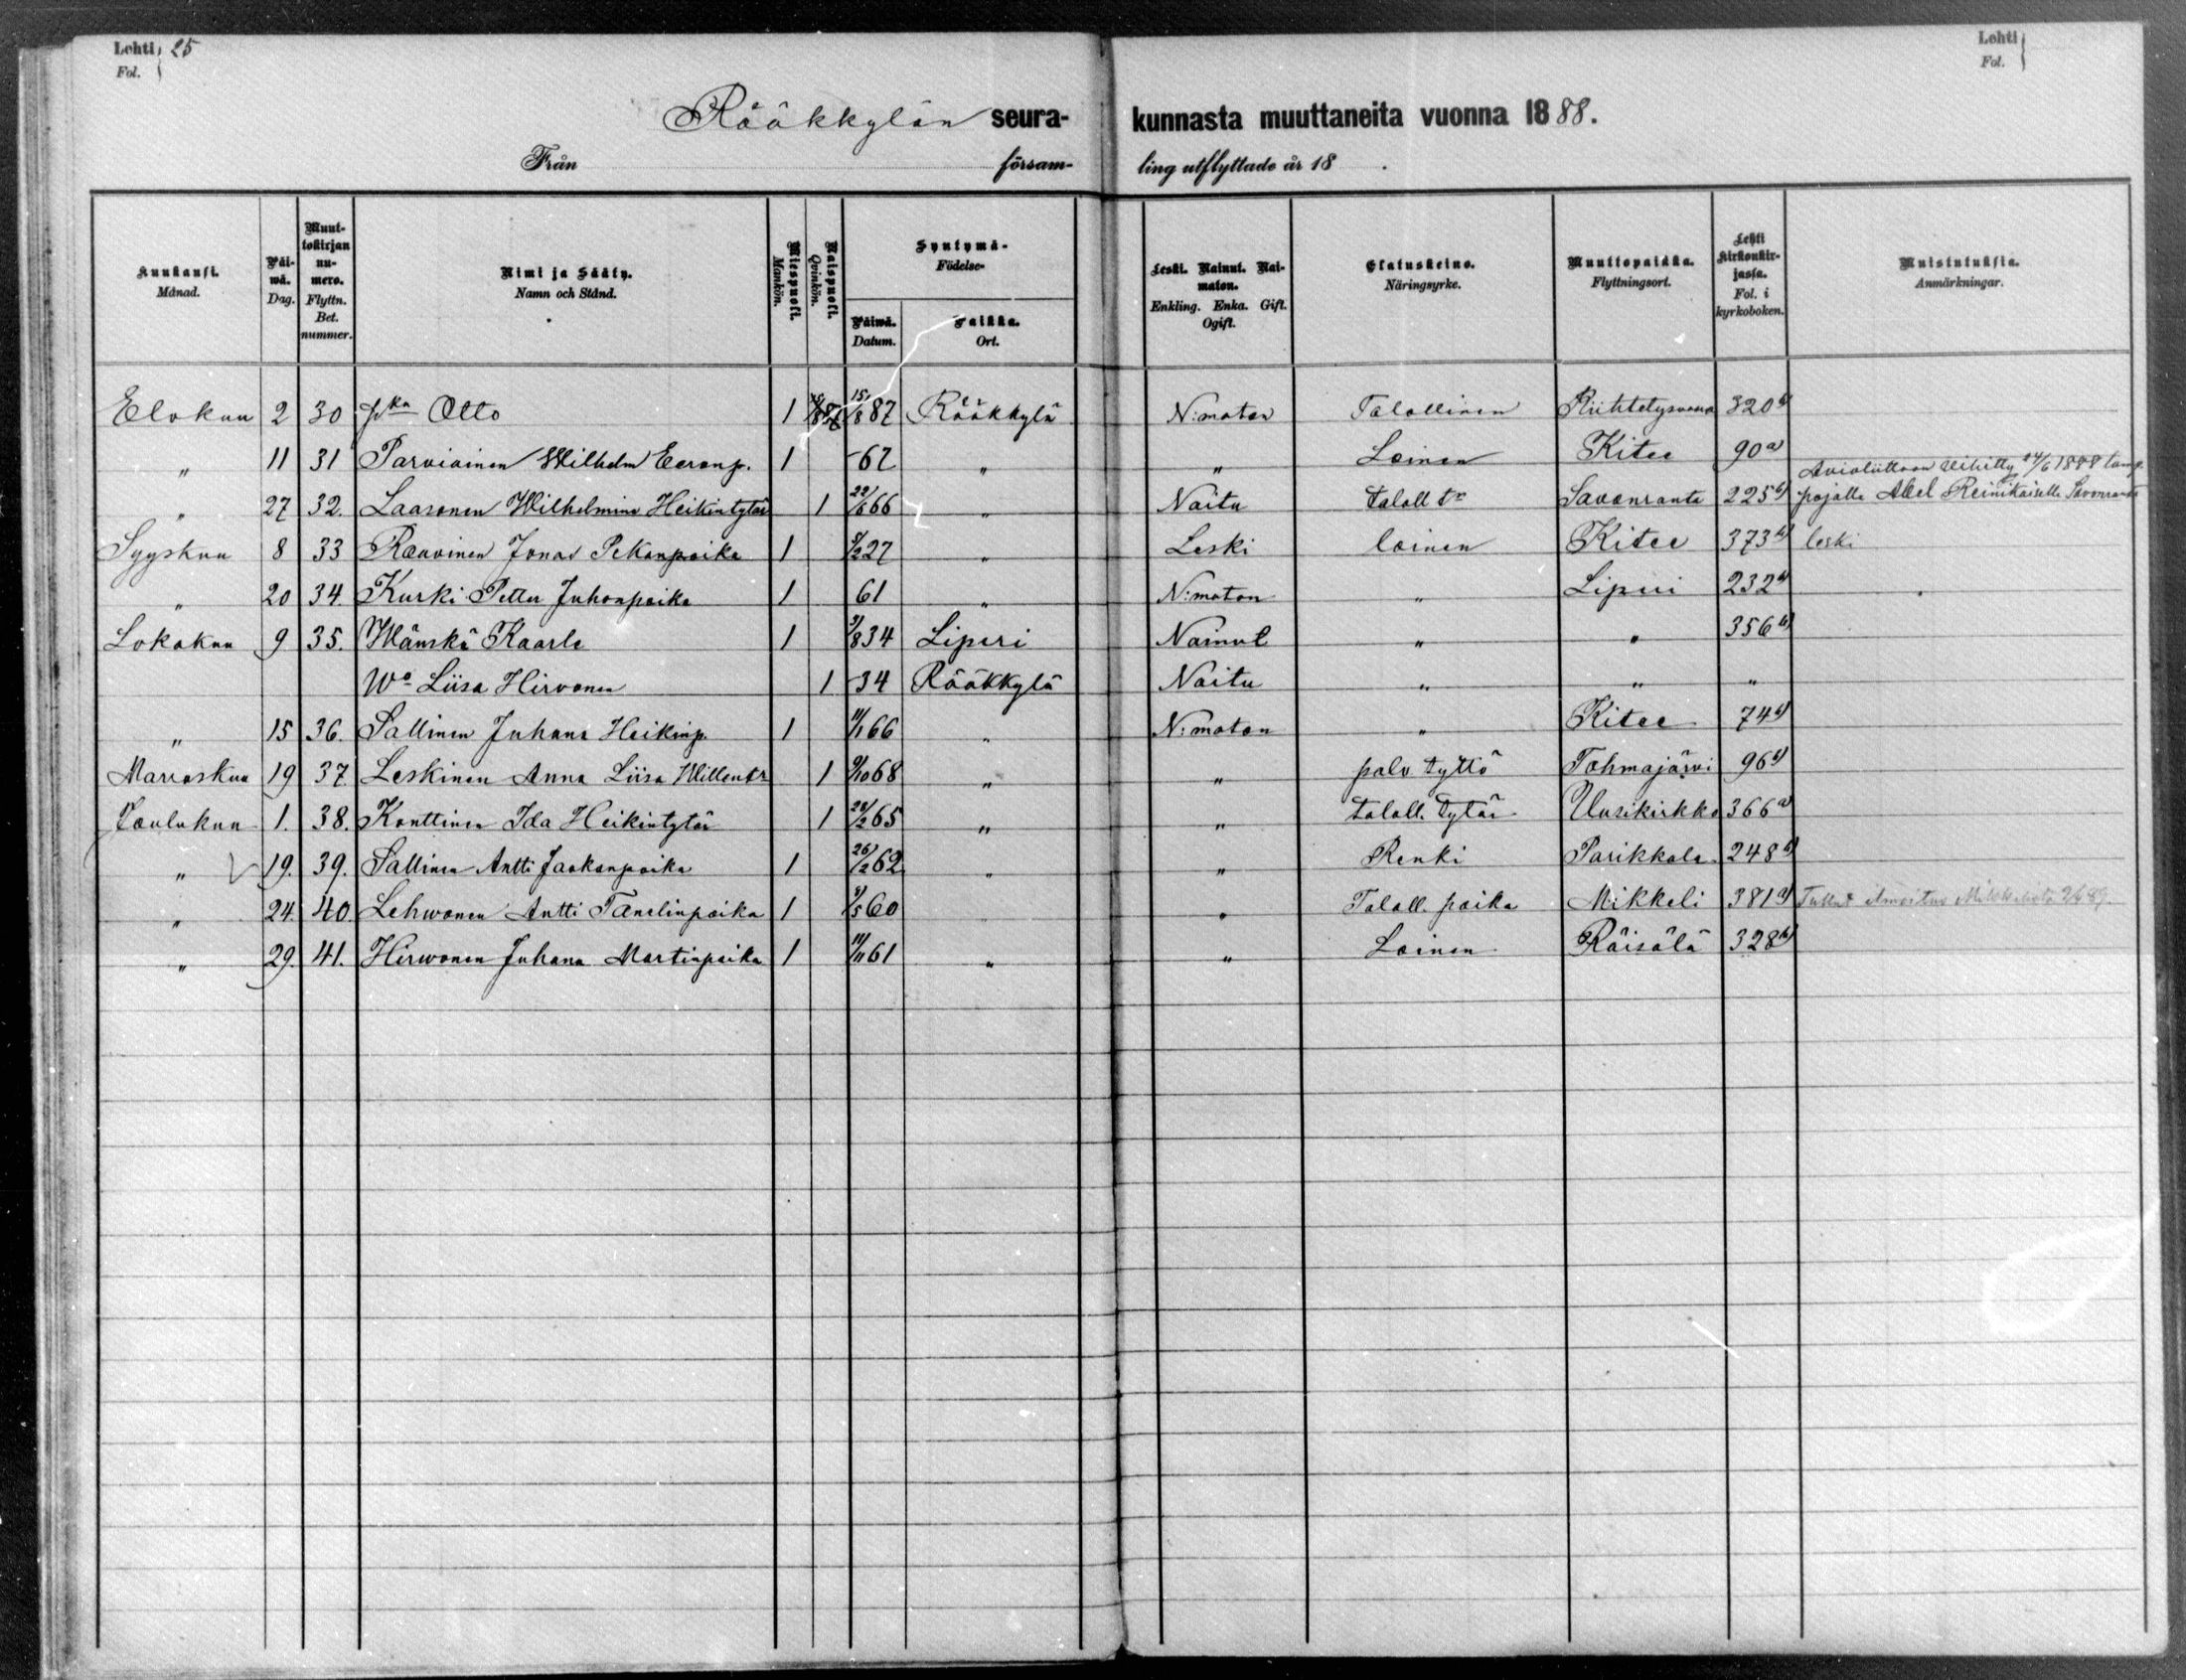 Lehti 25
Fol.
Lehti
Fol.
Rääkkylän seura-kunnasta muuttaneita vuonna 1888.
Från församling utflyttade år 18 .
Kuukausi. Månad.
Päiwä. Dag.
Muuttokirjan numero. Flyttn. Bet. nummer.
Nimi ja Sääty. Namn och Stånd.
Miespuoli. Mankön.
Naispuoli. Qvinkön.
Syntymä- Födelse-
Päiwä. Datum.
Paikka. Ort.
Leski. Nainut. Naimaton. Enkling. Enka. Gift. Ogift.
Elatuskeino. Näringsyrke.
Muuttopaikka. Flyttningsort.
Lehti kirkonkirjassa. Fol. i kyrkoboken.
Muistutuksia. Anmärkningar.
Elokuu 2 30 pka Otto 1 15/8 87 Rääkkylä N:maton Talollinen 320
" 11 31 Parviainen Wilhelm Eeronp. 1 -67 " " Loinen Kitee 90a)
" 27 32. Laasonen Wilhelmina Heikintytär 1 22/6 66 " Naitu taloll tr Savonranta 225 Avioliittoon vihitty 24/6 1888 pojalle Abel Reinikaiselle Savonranta
Syyskuu 8 33 Raavinen Jonas Pekanpoika 1 27 " Leski loinen Kitee 373 leski
" 20 34. Kurki Petter Juhonpoika 1 61 " N:maton " Liperi 232
Lokakuu 9 35. Wänskä Kaarle 1 34 Liperi Nainut " " 356
Wo Liisa Hirvonen 1 -34 Rääkkylä Naitu " " "
" 15 36. Sallinen Juhana Heikinp. 1 11/1 66 " N:maton " Kitee 74
Marraskuu 19 37. Leskinen Anna Liisa Willentr 1 68 " " palv tyttö Tohmajärvi 96
Joulukuu 1. 38. Konttinen Ida Heikintytär 1 65 " " taloll. tytär Uusikirkko 366a)
" 19. 39. Sallinen Antti Jaakonpoika 1 26/2 62 " " Renki Parikkala 248
" 24. 40. Lehwonen Antti Tanelinpoika 1 60 " Taloll. poika Mikkeli 381 Tullut ilmoitus
" 29. 41. Hirwonen Juhana Martinpoika 1 11/11 61 " " Loinen Räisälä 328